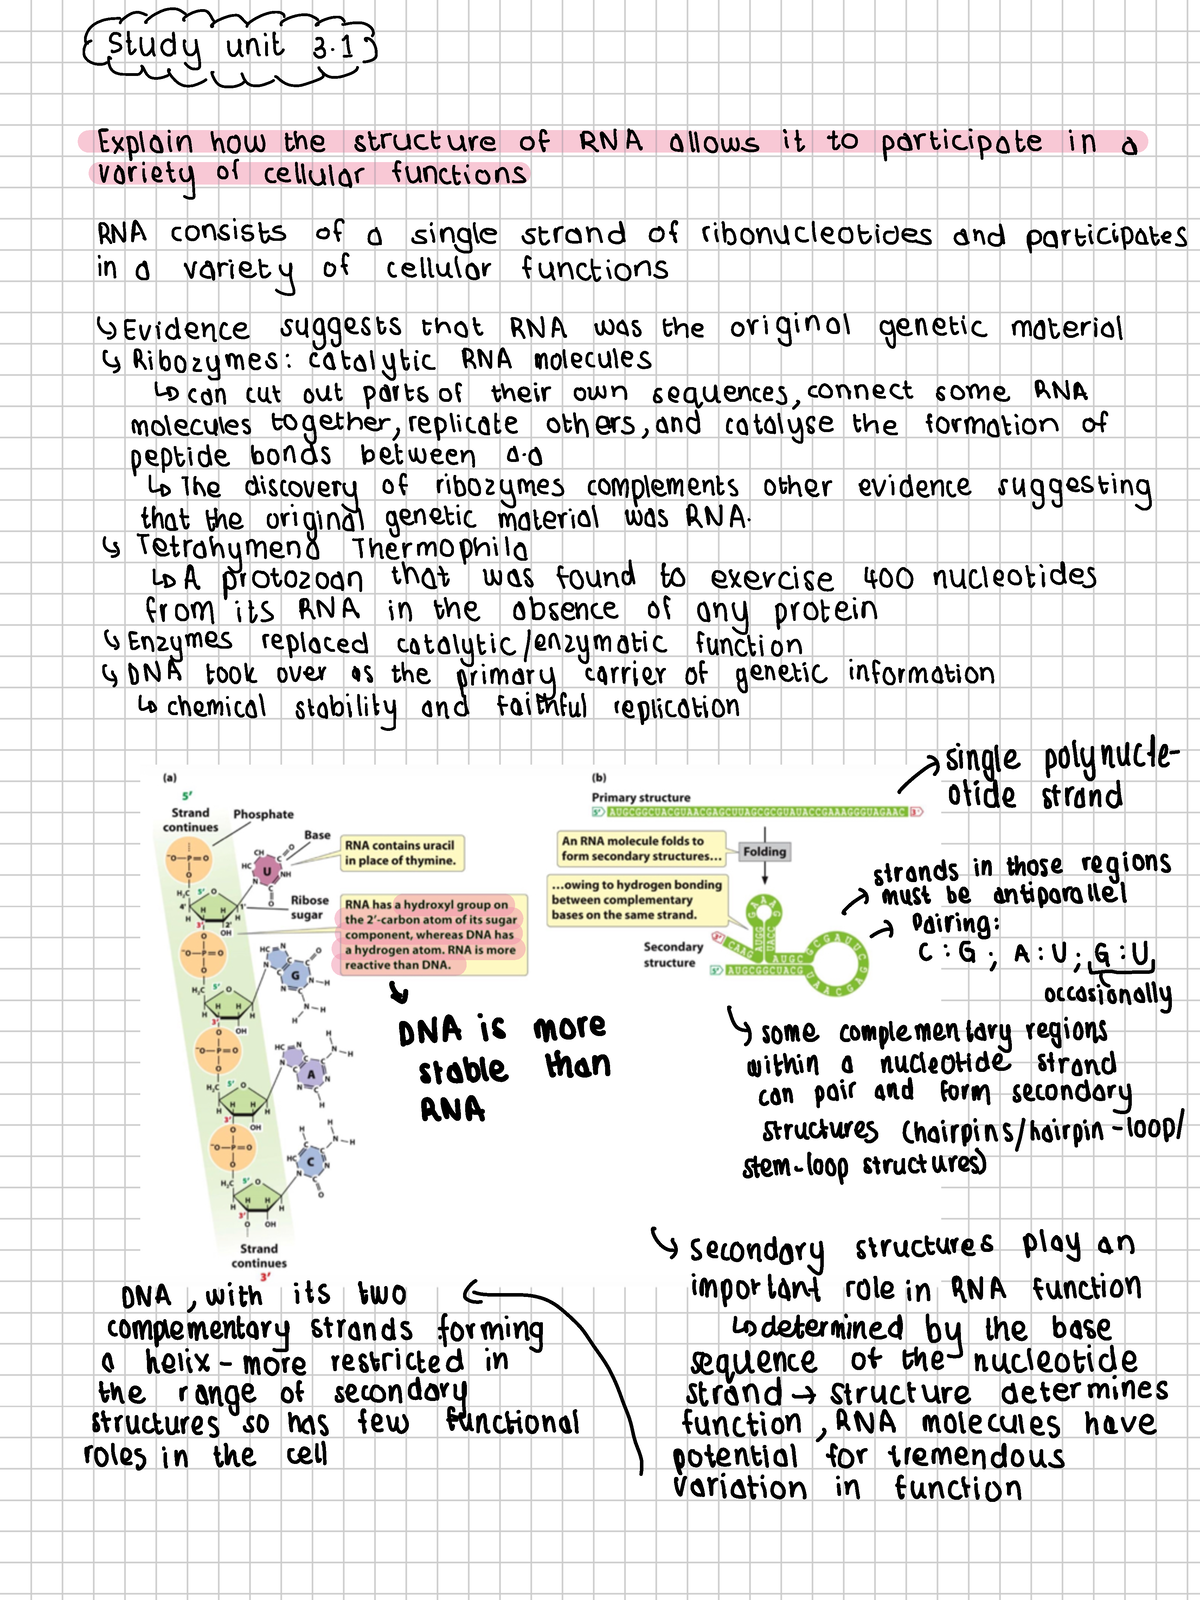 Study unit 3.1
Explain how the structure of RNA allows it to participate in a
variety of cellular functions
RNA consists of a single strand of ribonucleotides and participates
in a variety of cellular functions
↳ Evidence suggests that RNA was the original genetic material
↳ Ribozymes: catalytic RNA molecules
↳ can cut out parts of their own sequences, connect some RNA
molecules together, replicate others, and catalyse the formation of
peptide bonds between a.a
↳ The discovery of ribozymes complements other evidence suggesting
that the original genetic material was RNA.
↳ Tetrahymena Thermophila
↳ A protozoan that was found to exercise 400 nucleotides
from its RNA in the absence of any protein
↳ Enzymes replaced catalytic/enzymatic function
↳ DNA took over as the primary carrier of genetic information
↳ chemical stability and faithful replication
(a)
5'
Strand
continues
Phosphate
Base
RNA contains uracil
in place of thymine.
Ribose
sugar
RNA has a hydroxyl group on
the 2'-carbon atom of its sugar
component, whereas DNA has
a hydrogen atom. RNA is more
reactive than DNA.
U
G
A
C
Strand
continues
3'
DNA is more
stable than
RNA
(b)
Primary structure
5' AUGCGGCUACGUAACGAGCUUAGCGCGUAUACCGAAAGGGUAGAAC 3'
An RNA molecule folds to
form secondary structures...
Folding
...owing to hydrogen bonding
between complementary
bases on the same strand.
Secondary
structure
→ single polynucle-
otide strand
→ strands in those regions
must be antiparallel
→ Pairing:
C : G ; A : U ; G : U
occasionally
↳ some complementary regions
within a nucleotide strand
can pair and form secondary
structures (hairpins/hairpin-loop/
stem-loop structures)
↳ Secondary structures play an
important role in RNA function
↳ determined by the base
sequence of the nucleotide
strand → structure determines
function, RNA molecules have
potential for tremendous
variation in function
DNA, with its two
complementary strands forming
a helix - more restricted in
the range of secondary
structures so has few functional
roles in the cell